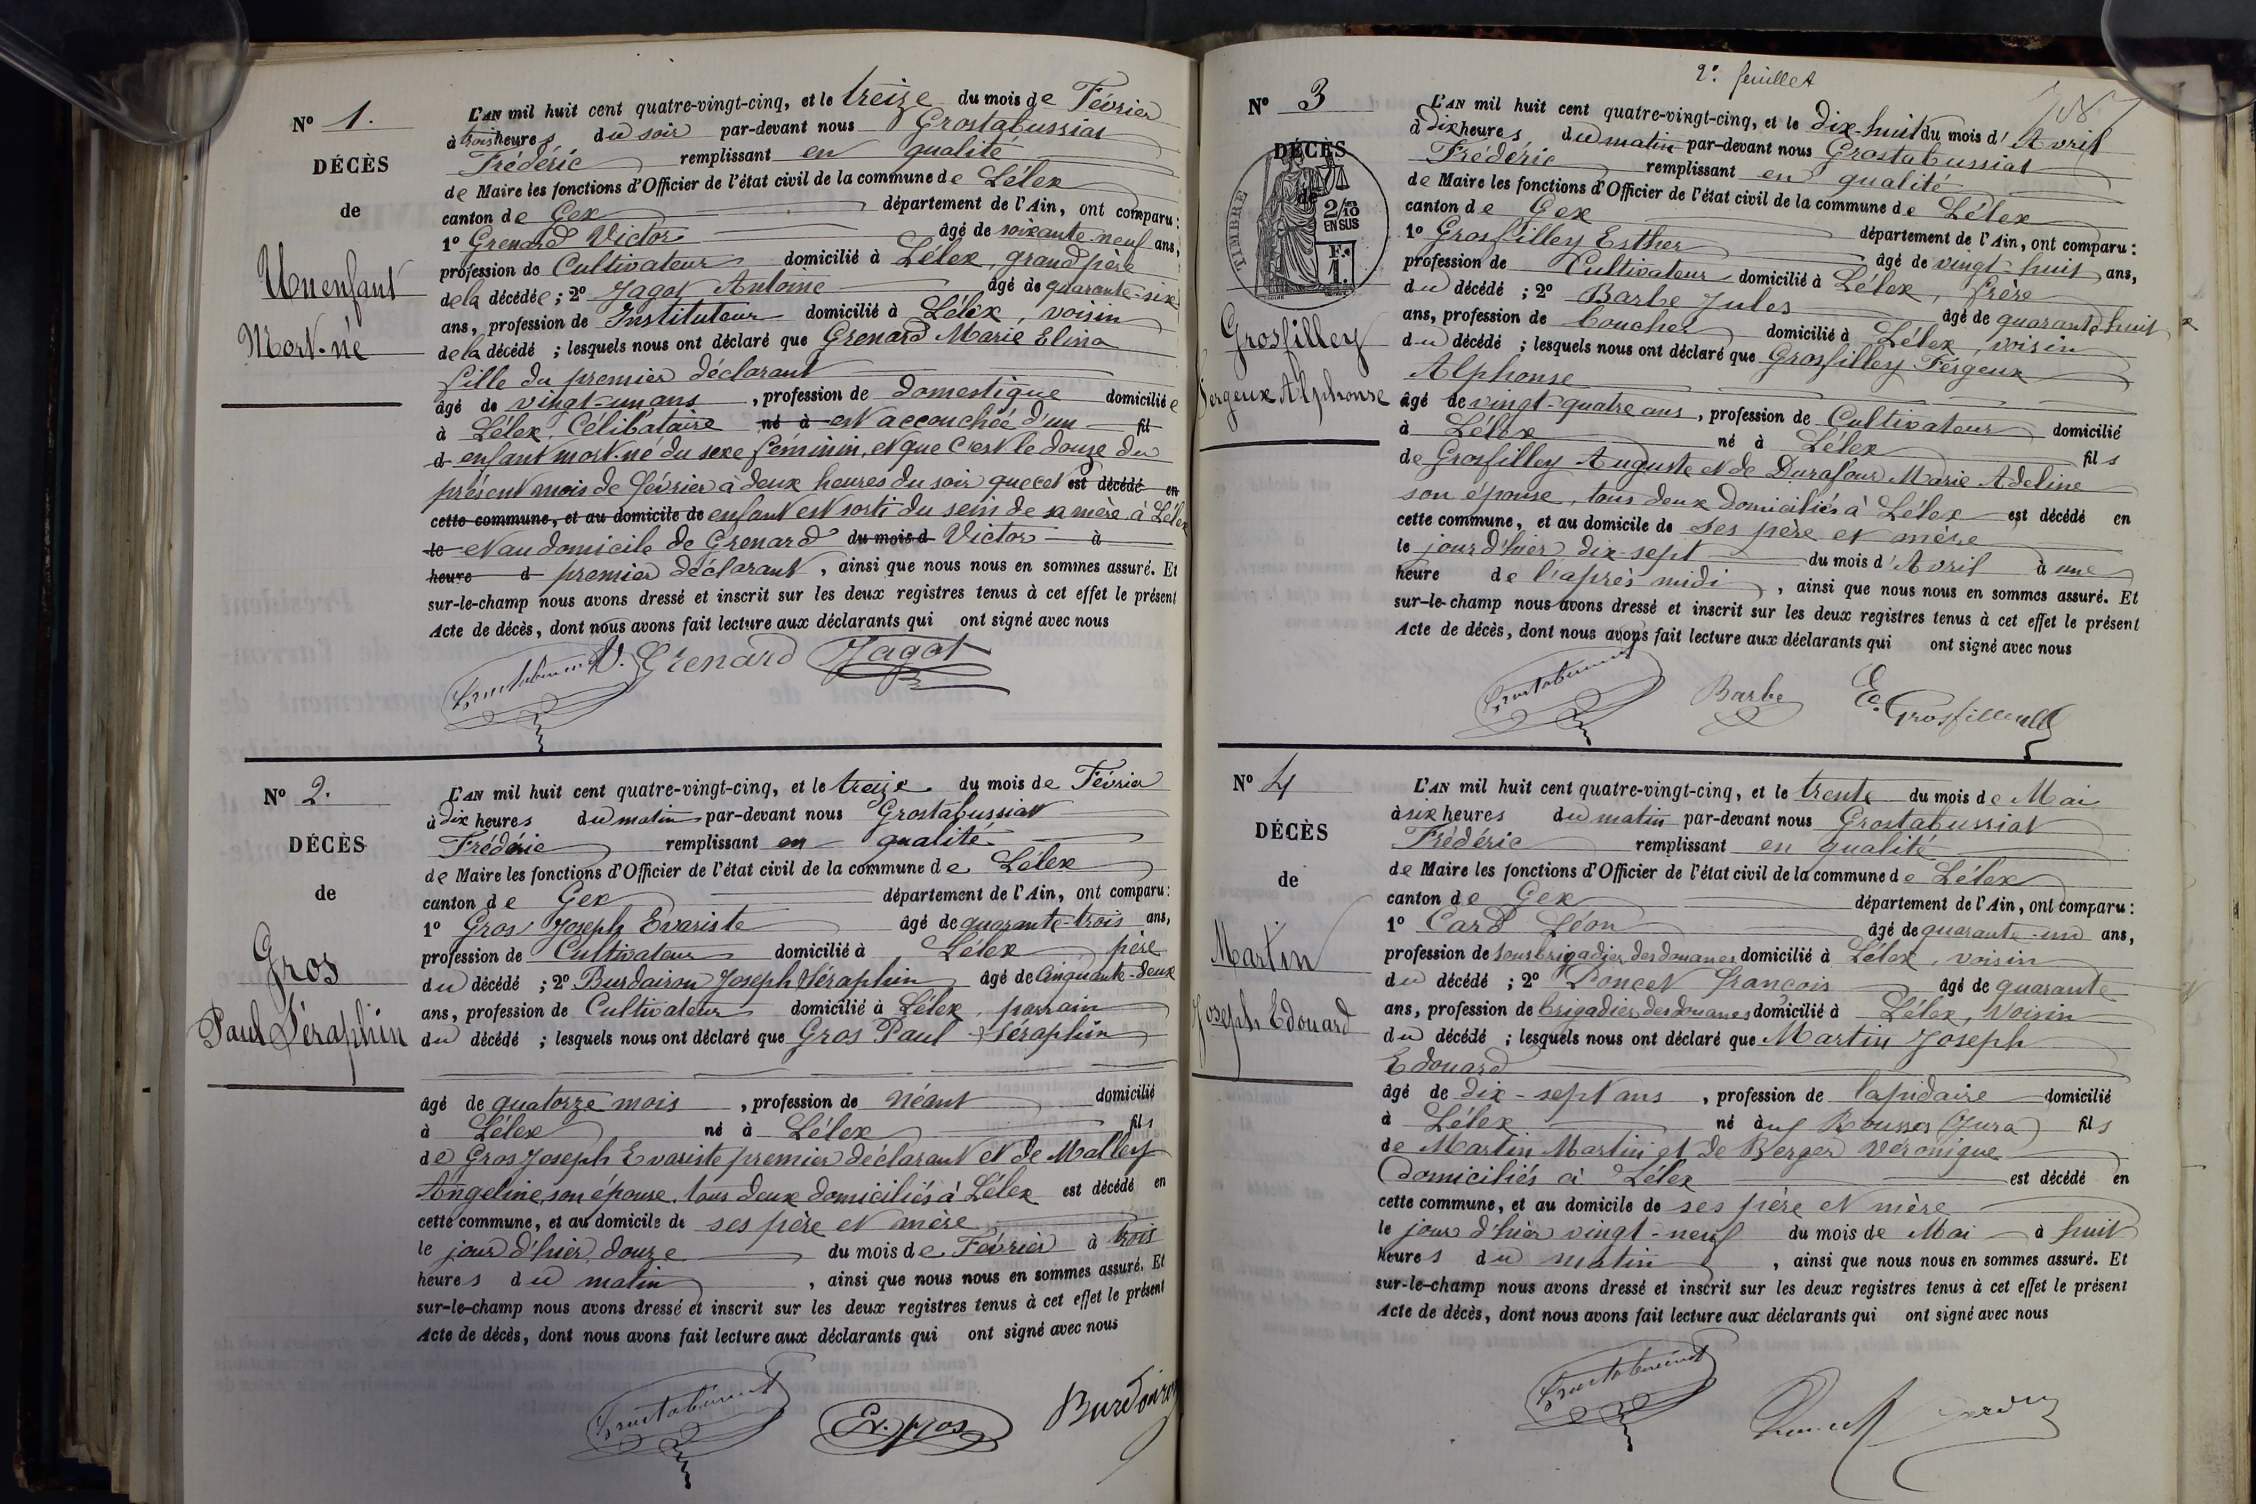 N° 1.
DÉCÈS
de
Un enfant
Mort-né
L'AN mil huit cent quatre-vingt-cinq, et le treize du mois de Février
à trois heures du soir par-devant nous Grostabussiat
Frédéric remplissant en qualité
de Maire les fonctions d'Officier de l'état civil de la commune de Lélex
canton de Gex département de l'Ain, ont comparu :
1° Grenard Victor âgé de soixante-neuf ans,
profession de Cultivateur domicilié à Lélex, grand père
de la décédée ; 2° Jagot Antoine âgé de quarante-six
ans, profession de Instituteur domicilié à Lélex, voisin
de la décédé ; lesquels nous ont déclaré que Grenard Marie Elina
fille du premier déclarant
âgé de vingt-un ans, profession de domestique domiciliée
à Lélex, Célibataire né à est accouchée d'un fil
d enfant mort-né du sexe féminin, et que c'est le douze du
présent mois de février à deux heures du soir que cet est décédé en
cette commune, et au domicile de enfant est sorti du sein de sa mère à Lélex
le et au domicile de Grenard du mois d Victor à
heure d premier déclarant, ainsi que nous nous en sommes assuré. Et
sur-le-champ nous avons dressé et inscrit sur les deux registres tenus à cet effet le présent
Acte de décès, dont nous avons fait lecture aux déclarants qui ont signé avec nous
Grostabussiat V. Grenard Jagot
N° 2.
DÉCÈS
de
Gros
Paul Séraphin
L'AN mil huit cent quatre-vingt-cinq, et le treize du mois de Février
à dix heures du matin par-devant nous Grostabussiat
Frédéric remplissant en qualité
de Maire les fonctions d'Officier de l'état civil de la commune de Lélex
canton de Gex département de l'Ain, ont comparu :
1° Gros Joseph Evariste âgé de quarante-trois ans,
profession de Cultivateur domicilié à Lélex père
du décédé ; 2° Burdairon Joseph Séraphin âgé de Cinquante-deux
ans, profession de Cultivateur domicilié à Lélex, parrain
du décédé ; lesquels nous ont déclaré que Gros Paul Séraphin
âgé de quatorze mois, profession de néant domicilié
à Lélex né à Lélex fils
de Gros Joseph Evariste premier déclarant et de Malley
Angeline son épouse, tous deux domiciliés à Lélex est décédé en
cette commune, et au domicile de ses père et mère
le jour d'hier douze du mois de Février à trois
heures du matin, ainsi que nous nous en sommes assuré. Et
sur-le-champ nous avons dressé et inscrit sur les deux registres tenus à cet effet le présent
Acte de décès, dont nous avons fait lecture aux déclarants qui ont signé avec nous
Grostabussiat Ev. gros Burdairon
2e feuillet
N° 3
DÉCÈS
de
TIMBRE
2/10
EN SUS
F.c
1.
Grosfilley
Fergeux Alphonse
L'AN mil huit cent quatre-vingt-cinq, et le dix-huit du mois d'Avril
à dix heures du matin par-devant nous Grostabussiat
Frédéric remplissant en qualité
de Maire les fonctions d'Officier de l'état civil de la commune de Lélex
canton de Gex département de l'Ain, ont comparu :
1° Grosfilley Esther âgé de vingt-huit ans,
profession de Cultivateur domicilié à Lélex, frère
du décédé ; 2° Barbe Jules âgé de quarante huit
ans, profession de boucher domicilié à Lélex, voisin
du décédé ; lesquels nous ont déclaré que Grosfilley Fergeux
Alphonse
âgé de vingt-quatre ans, profession de Cultivateur domicilié
à Lélex né à Lélex fils
de Grosfilley Auguste et de Durafour Marie Adeline
son épouse, tous deux domiciliés à Lélex est décédé en
cette commune, et au domicile de ses père et mère
le jour d'hier dix-sept du mois d'Avril à une
heure de l'après midi, ainsi que nous nous en sommes assuré. Et
sur-le-champ nous avons dressé et inscrit sur les deux registres tenus à cet effet le présent
Acte de décès, dont nous avons fait lecture aux déclarants qui ont signé avec nous
Grostabussiat Barbe E. Grosfilley
N° 4
DÉCÈS
de
Martin
Joseph Edouard
L'AN mil huit cent quatre-vingt-cinq, et le trente du mois de Mai
à six heures du matin par-devant nous Grostabussiat
Frédéric remplissant en qualité
de Maire les fonctions d'Officier de l'état civil de la commune de Lélex
canton de Gex département de l'Ain, ont comparu :
1° Card Léon âgé de quarante-un ans,
profession de sous brigadier des douanes domicilié à Lélex, voisin
du décédé ; 2° Poncet françois âgé de quarante
ans, profession de brigadier des douanes domicilié à Lélex, Voisin
du décédé ; lesquels nous ont déclaré que Martin Joseph
Edouard
âgé de dix-sept ans, profession de lapidaire domicilié
à Lélex né aux Rousses (Jura) fils
de Martin Martin et de Berger Véronique
domiciliés à Lélex est décédé en
cette commune, et au domicile de ses père et mère
le jour d'hier vingt-neuf du mois de Mai à huit
heures du matin, ainsi que nous nous en sommes assuré. Et
sur-le-champ nous avons dressé et inscrit sur les deux registres tenus à cet effet le présent
Acte de décès, dont nous avons fait lecture aux déclarants qui ont signé avec nous
Grostabussiat Poncet Card